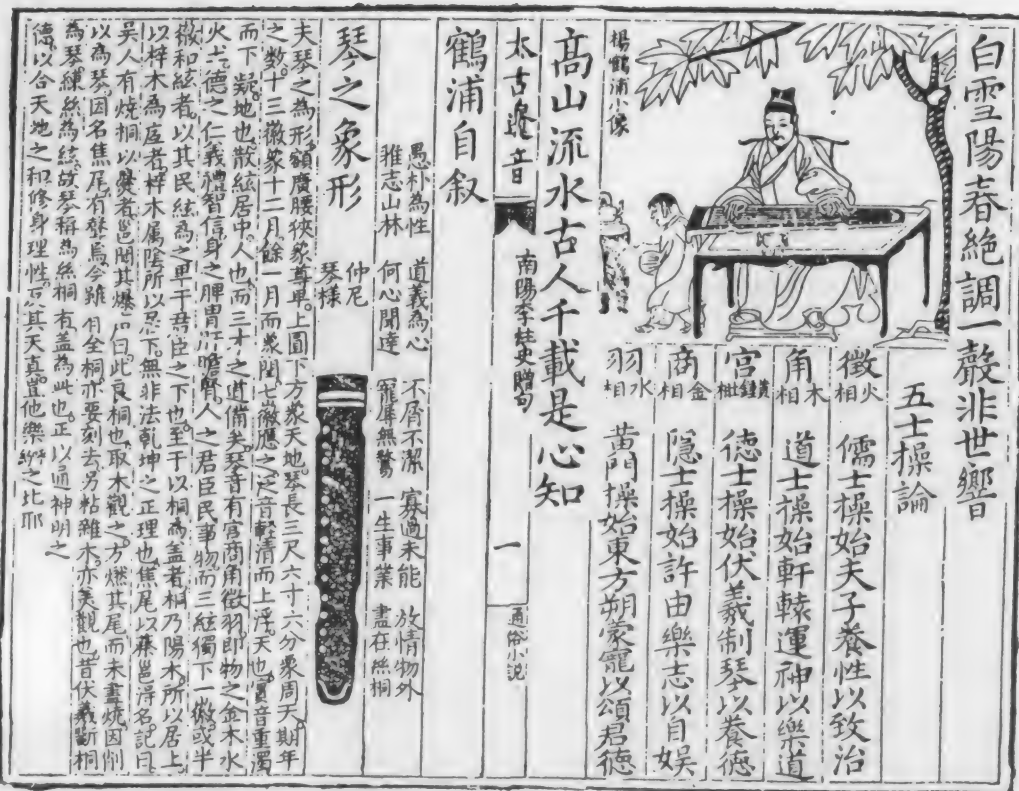 白雪陽春絶調一聲非世響
五士操論
徵火相 儒士操始夫子養性以致治
角木相 道士操始軒轅運神以樂道
宫黄鍾相 德士操始伏羲制琴以養德
商金相 隱士操始許由樂志以自娱
羽水相 黄門操始東方朔蒙寵以頌君德
楊鶴浦小像
高山流水古人千載是心知
太古遺音
南陽李柱史贈句
一
通俗小説
鶴浦自叙
愚朴為性 道義為心 不屑不潔 寡過未能 放情物外
雅志山林 何心聞達 寵辱無驚 一生事業 盡在絲桐
琴之象形
仲尼琴樣
夫琴之為形額廣腰狹象尊卑上圓下方象天地琴長三尺六寸六分象周天期年
之數十三徽象十二月餘一月而象閏七徽應之泛音輕清而上浮天也實音重濁
而下凝地也散絃居中人也而三才之道備矣琴音有宫商角徵羽即物之金木水
火土德之仁義禮智信身之脾胃肝膽腎人之君臣民事物而三絃獨下一徽或半
徽和絃者以其民絃為之卑于君臣之下也至于以桐為盖者桐乃陽木所以居上
以梓木為底者梓木属陰所以居下無非法乾坤之正理也焦尾以蔡邕得名記曰
吴人有燒桐以爨者邕聞其爆 曰此良桐也取木觀之方燃其尾而未盡燒因削
以為琴因名焦尾有聲焉今雖有全桐亦要刻去另粘雜木亦美觀也昔伏羲斵桐
為琴䋲絲為絃故琴稱為絲桐有盖為此也正以通神明之
德以合天地之和修身理性 其天真豈他樂 之比耶